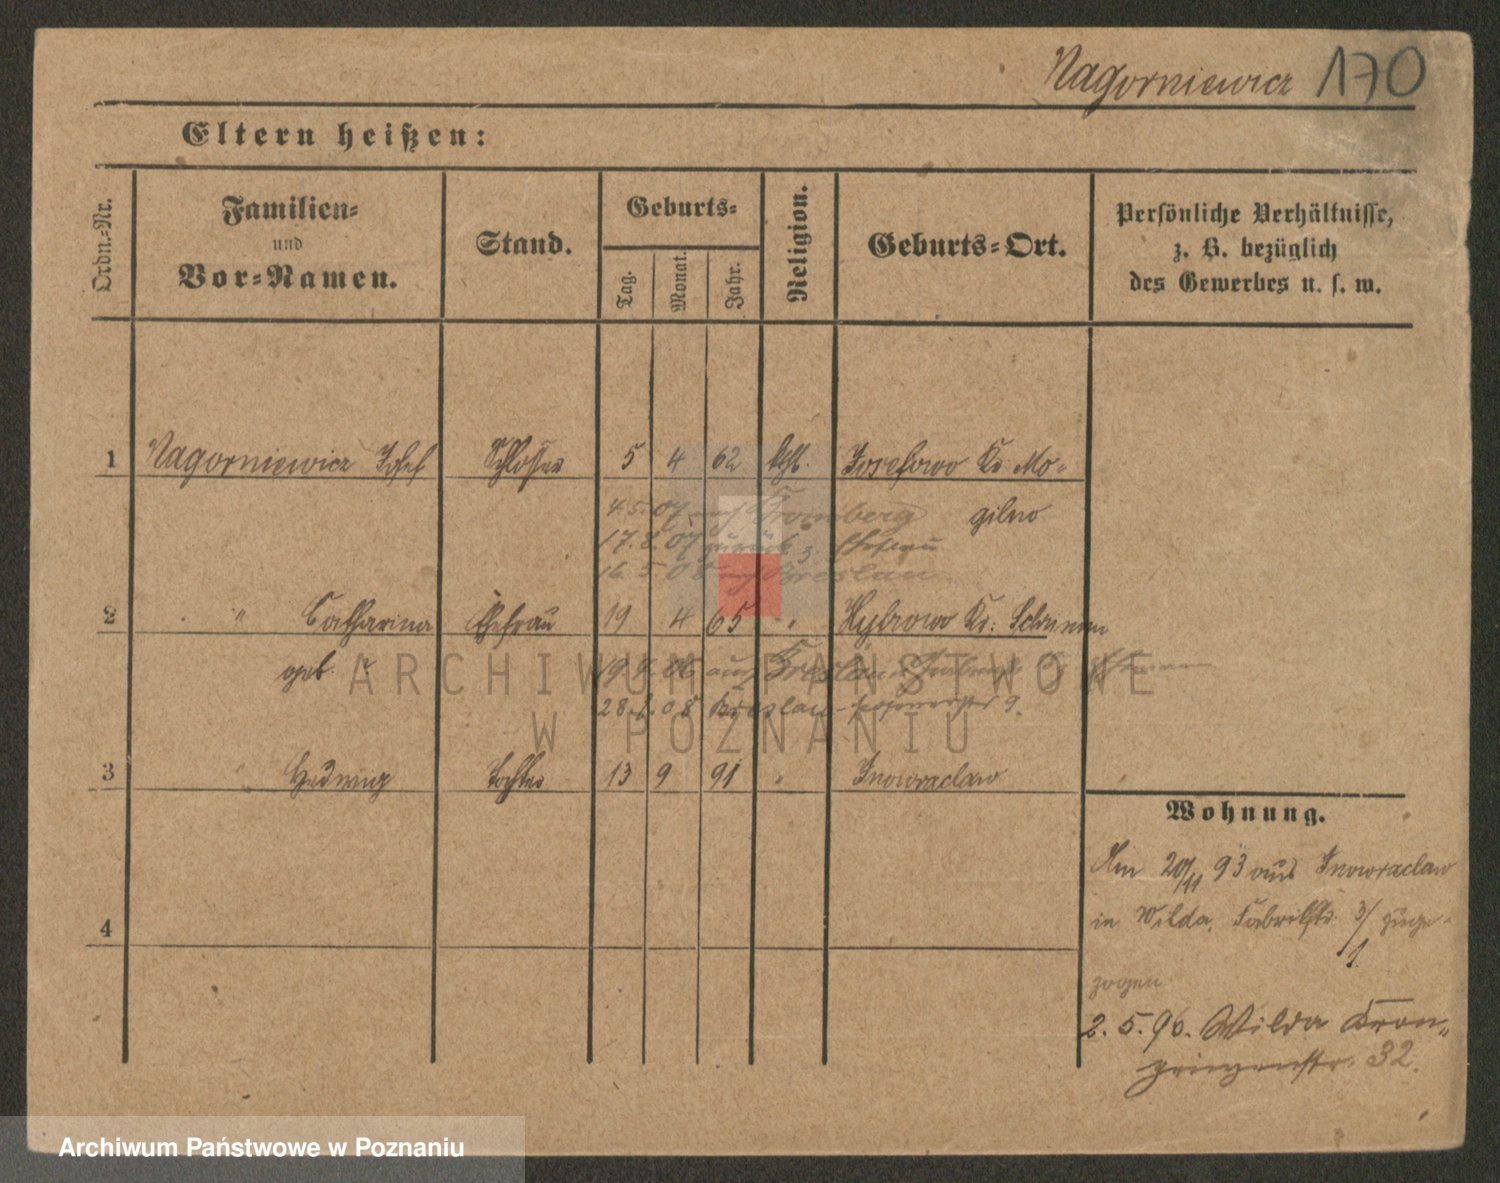 Nagorniewicz 170
Eltern heißen:
Ordn.-Nr.
Familien-
und
Vor-Namen.
Stand.
Geburts-
Tag.
Monat.
Jahr.
Religion.
Geburts-Ort.
Persönliche Verhältnisse,
z. B. bezüglich
des Gewerbes u. s. w.
1 Nagorniewicz Josef Schlosser 5 4 62 kath. Josefowo Kr. Mo-
gilno
4.5.07 nach Bromberg
17. 8. 07 zurück z. Ehefrau
16. 5. 08 nach Breslau
2 " Catharina Ehefrau 19 4 65 "
geb.
28. 08 Breslau 9.
3 " Hedwig Tochter 13 9 91 " Inowraclaw
4
Wohnung.
Am 20/11 93 aus Inowraclaw
in Wilda, Fabrikstr. 3/1 zuge-
zogen
2. 5. 96. Wilda Kron-
prinzenstr. 32.
ARCHIWUM PAŃSTWOWE
W POZNANIU
Archiwum Państwowe w Poznaniu